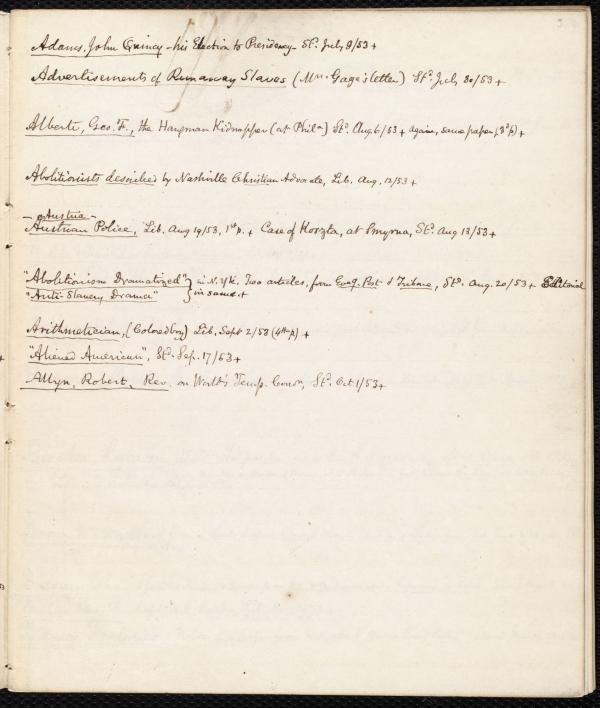 Adams, John Quincy - his Election to Presidency - St. July 9/53 +
Advertisements of Runaway Slaves (Mrs. Gage's letter) Std. July 30/53 +
Alberti, Geo. F., the Hangman Kidnapper (at Phila) Std. Aug 6/53 + again, same paper, (3d p) +
Abolitionists described by Nashville Christian Advocate, Lib. Aug. 12/53 +
- Austria -
Austrian Police, Lib. Aug 19/53, 1st p. + Case of Koszta, at Smyrna, St. Aug 13/53 +
"Abolitionism Dramatized" } in N. York. Two articles, from Evng. Post & Tribune, Std. Aug. 20/53 + Editorial
"Anti-Slavery Drama" } in same. +
Arithmetician, (Colored boy) Lib. Sept 2/53 (4th p) +
"Aliened American", St. Sep. 17/53 +
Allyn, Robert, Rev. on World's Temp. Convn, St. Oct 1/53 +